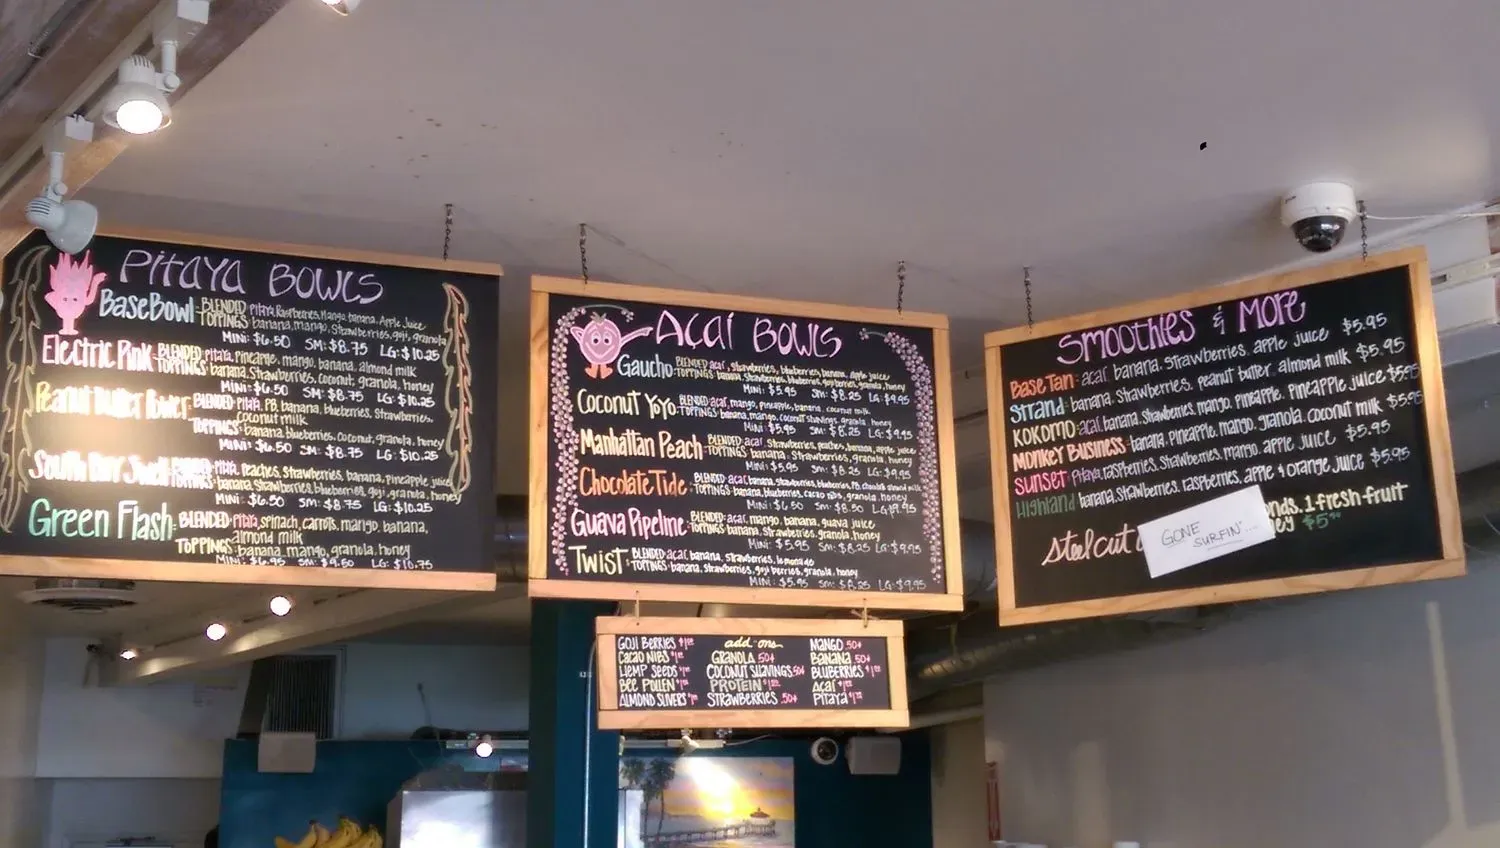 Pitaya Bowls
Base Bowl - BLENDED: Pitaya, Raspberries, Mango, banana, Apple Juice
TOPPINGS: banana, mango, strawberries, goji, granola
Mini: $6.50 SM: $8.75 LG: $10.25
Electric Pink - BLENDED: pitaya, pineapple, mango, banana, almond milk
TOPPINGS: banana, strawberries, coconut, granola, honey
Mini: $6.50 SM: $8.75 LG: $10.25
Peanut Butter Power - BLENDED: pitaya, PB, banana, blueberries, strawberries,
coconut milk
TOPPINGS: banana, blueberries, coconut, granola, honey
Mini: $6.50 SM: $8.75 LG: $10.25
South Bay Swell - BLENDED: pitaya, peaches, strawberries, banana, pineapple juice
TOPPINGS: banana, strawberries, blueberries, goji, granola, honey
Mini: $6.50 SM: $8.75 LG: $10.25
Green Flash - BLENDED: pitaya, spinach, carrots, mango, banana,
almond milk
TOPPINGS: banana, mango, granola, honey
Mini: $6.95 SM: $9.50 LG: $10.75
Açaí Bowls
Gaucho - BLENDED: açaí, strawberries, blueberries, banana, apple juice
TOPPINGS: banana, strawberries, blueberries, goji berries, granola, honey
Mini: $5.95 SM: $8.25 LG: $9.95
Coconut YoYo - BLENDED: açaí, mango, pineapple, banana, coconut milk
TOPPINGS: banana, mango, coconut shavings, granola, honey
Mini: $5.95 SM: $8.25 LG: $9.95
Manhattan Peach - BLENDED: açaí, strawberries, peaches, banana, apple juice
TOPPINGS: banana, strawberries, granola, honey
Mini: $5.95 SM: $8.25 LG: $9.95
Chocolate Tide - BLENDED: açaí, banana, strawberries, blueberries, PB, chocolate almond milk
TOPPINGS: banana, blueberries, cacao nibs, granola, honey
Mini: $6.50 SM: $8.50 LG: $9.95
Guava Pipeline - BLENDED: açaí, mango, banana, guava juice
TOPPINGS: banana, strawberries, granola, honey
Mini: $5.95 SM: $8.25 LG: $9.95
Twist - BLENDED: açaí, banana, strawberries, lemonade
TOPPINGS: banana, strawberries, goji berries, granola, honey
Mini: $5.95 SM: $8.25 LG: $9.95
Smoothies & More
Base Tan: açaí, banana, strawberries, apple juice $5.95
Strand: banana, strawberries, peanut butter, almond milk $5.95
Kokomo: açaí, banana, strawberries, mango, pineapple, pineapple juice $5.95
Monkey Business: banana, pineapple, mango, granola, coconut milk $5.95
Sunset: Pitaya, raspberries, strawberries, mango, apple juice $5.95
Highland: banana, strawberries, raspberries, apple & orange juice $5.95
Steel cut
GONE SURFIN'....
onds, 1 fresh fruit
ney $5
add-ons
GOJI BERRIES $1.00
CACAO NIBS $1.00
HEMP SEEDS $1.00
BEE POLLEN $1.00
ALMOND SLIVERS $1.00
GRANOLA .50¢
COCONUT SHAVINGS .50¢
PROTEIN $1.00
STRAWBERRIES .50¢
MANGO .50¢
BANANA .50¢
BLUBERRIES $1.00
AÇAÍ $1.00
PITAYA $1.00